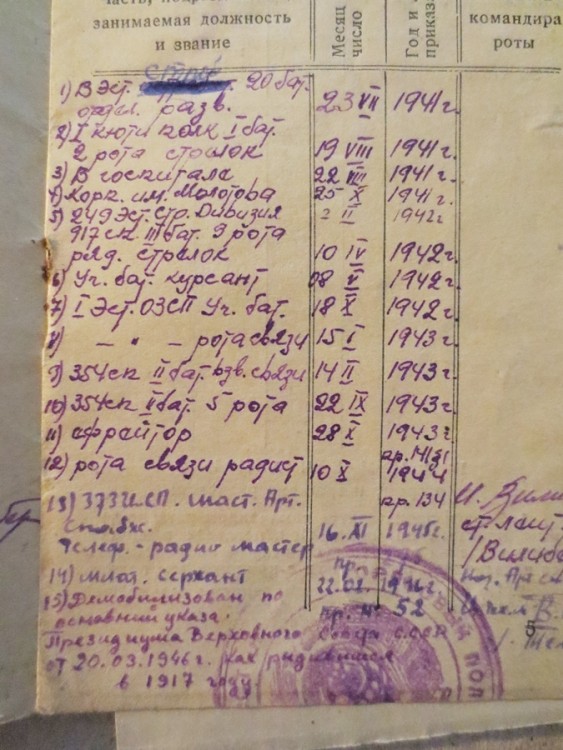 занимаемая должность
и звание
Месяц
число
Год и
приказа
командира
роты
1) В Эст. 20 бат.
отдел. разв. 23 VII 1941 г.
2) I полк I бат.
2 рота стрелок 19 VIII 1941 г.
3) В госпитале 22 VIII 1941 г.
4) Корк. им. Молотова 25 X 1941 г.
5) 249 Эст. Стр. Дивизия II 1942 г.
917 сп. III бат. 9 рота
ряд. стрелок 10 IV 1942 г.
6) Уч. бат. курсант 08 V 1942 г.
7) I Эст. ОЗСП Уч. бат. 18 X 1942 г.
8) — " — — рота связи 15 I 1943 г.
9) 354 сп II бат. взв. связи 14 II 1943 г.
10) 354 сп II бат. 5 рота 22 IX 1943 г.
11) ефрейтор 28 X 1943 г.
12) рота связи радист 10 X 1944
пр. 134
13) маст. Арт.
снабж. 16. XI 1945 г.
Телеф. - радио мастер
14) млад. сержант 22.02. 1946 г.
15) Демобилизован по пр. № 52
основании указа.
Президиума Верховного Совета СССР
от 20.03.1946 г. как родившийся
в 1917 году